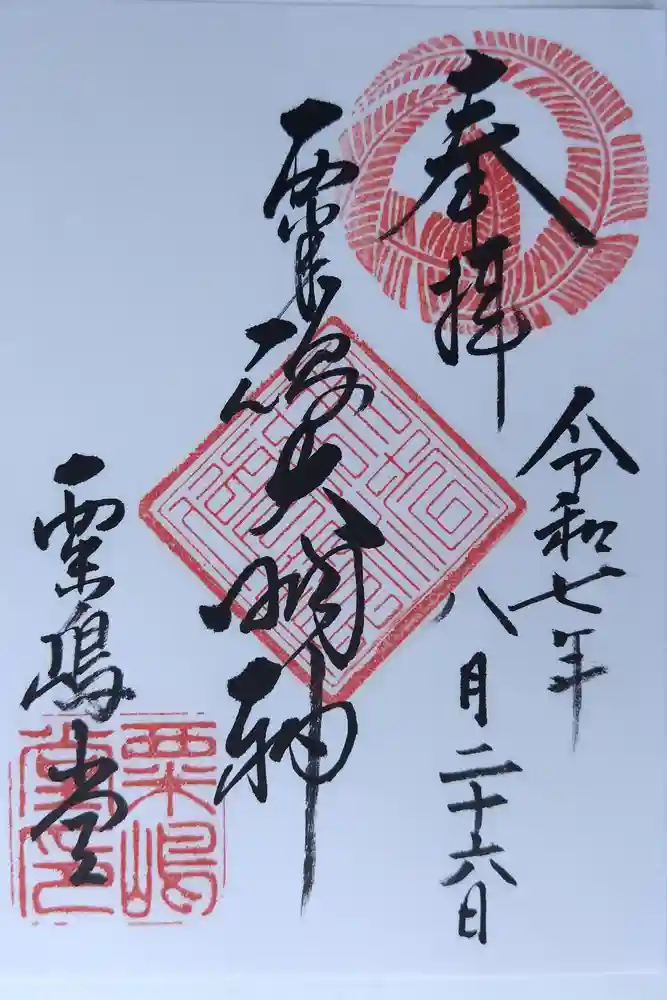 奉拝
令和七年
八月二十六日
粟嶋大明神
粟嶋堂
粟嶋
堂印